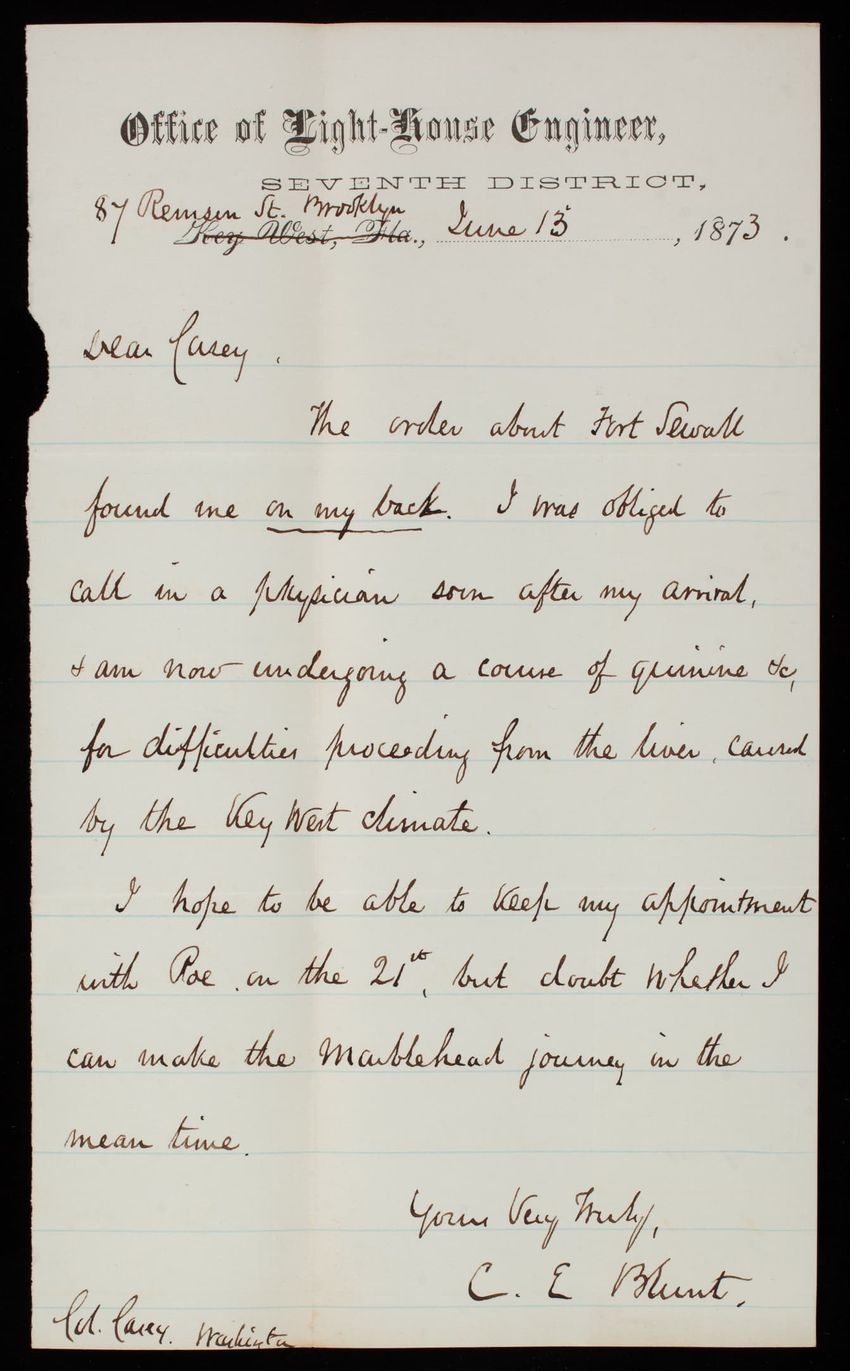 Office of Light-House Engineer,
SEVENTH DISTRICT,
87 Remsen St. Brooklyn
Key West, Fla., June 15, 1873.
Dear Casey,
The order about Fort Sewall
found me on my back. I was obliged to
call in a physician soon after my arrival,
& am now undergoing a course of quinine &c,
for difficulties proceeding from the liver, caused
by the Key West climate.
I hope to be able to keep my appointment
with Poe, on the 21st, but doubt whether I
can make the Marblehead journey in the
mean time.
Yours Very Truly,
C. E Blunt.
Col. Casey. Washington